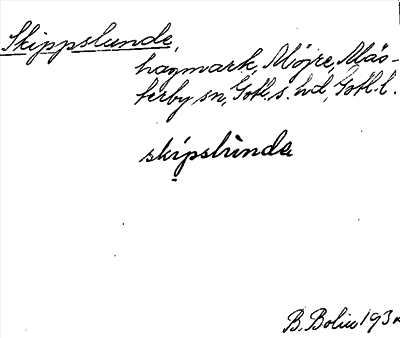 Skippslunde,
hagmark, Mojre, Mäs-
terby sn, Gotl. s. hd, Gotl. l.
skípslùnda
B. Bolin 193